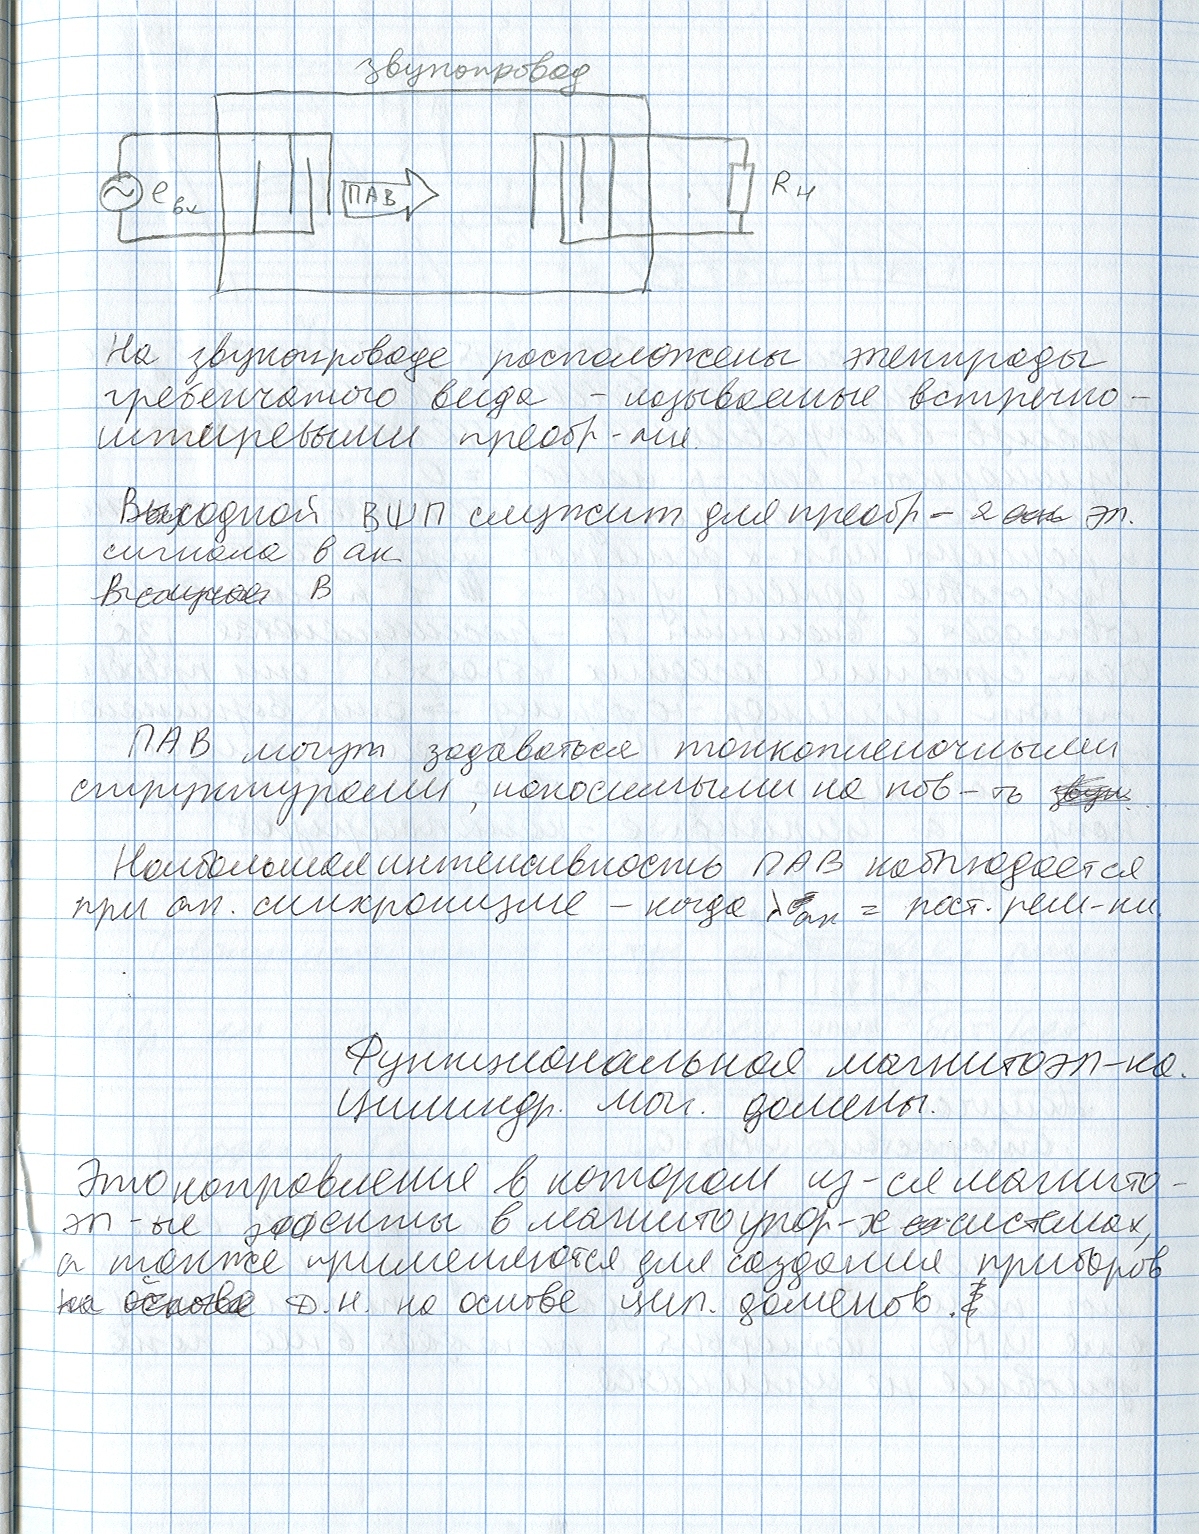 звукопровод
eвх
ПАВ
Rн
На звукопроводе расположены электроды
гребенчатого вида – называемые встречно-
штыревыми преобр-ми.
Выходной ВШП служит для преобр-я эл.
сигнала в ак
В
ПАВ могут задаваться тонкопленочными
структурами, наносимыми на пов-ть
Наибольшая интенсивность ПАВ наблюдается
при ак. синхронизме – когда λак = пост. реш-ки.
Функциональная магнитоэл-ка.
Цилиндр. маг. домены.
Это направление в котором из-ся магнито-
эл-ые эффекты в магнитоупор-х системах,
а также применяются для создания приборов
на основе цил. доменов.